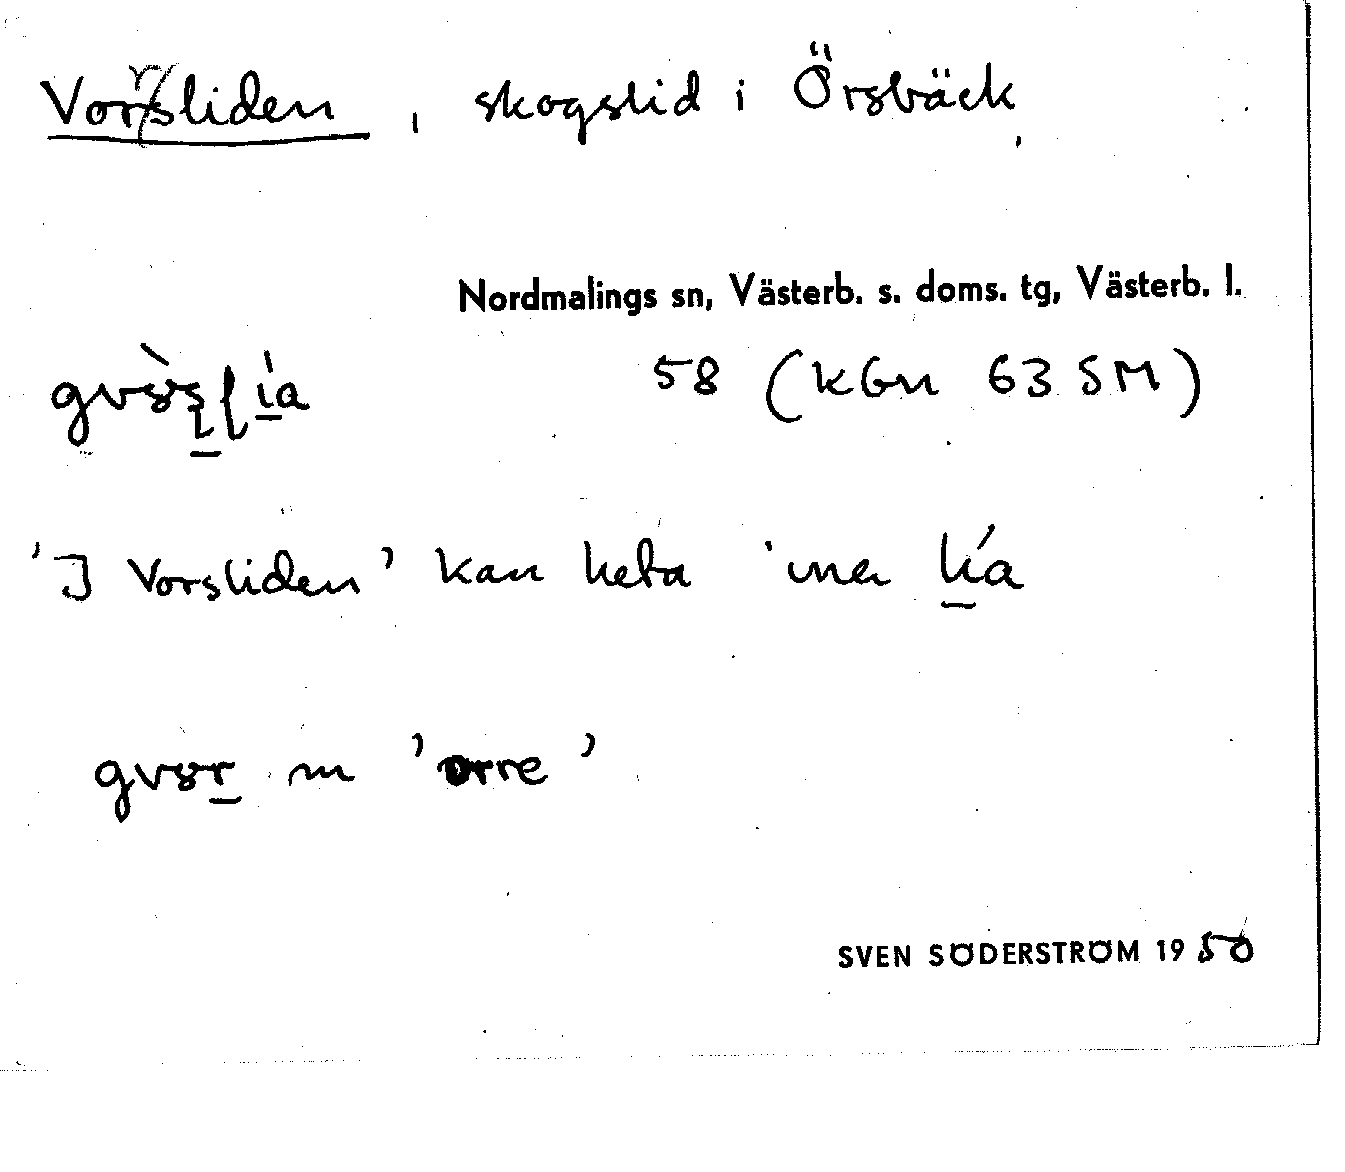 Vorrsliden, skogslid i Örsbäck,
Nordmalings sn, Västerb. s. doms. tg, Västerb. l.
58 (KGn 63 SM)
'I Vorsliden' kan heta 'ma lía
m 'orre'
SVEN SÖDERSTRÖM 1950